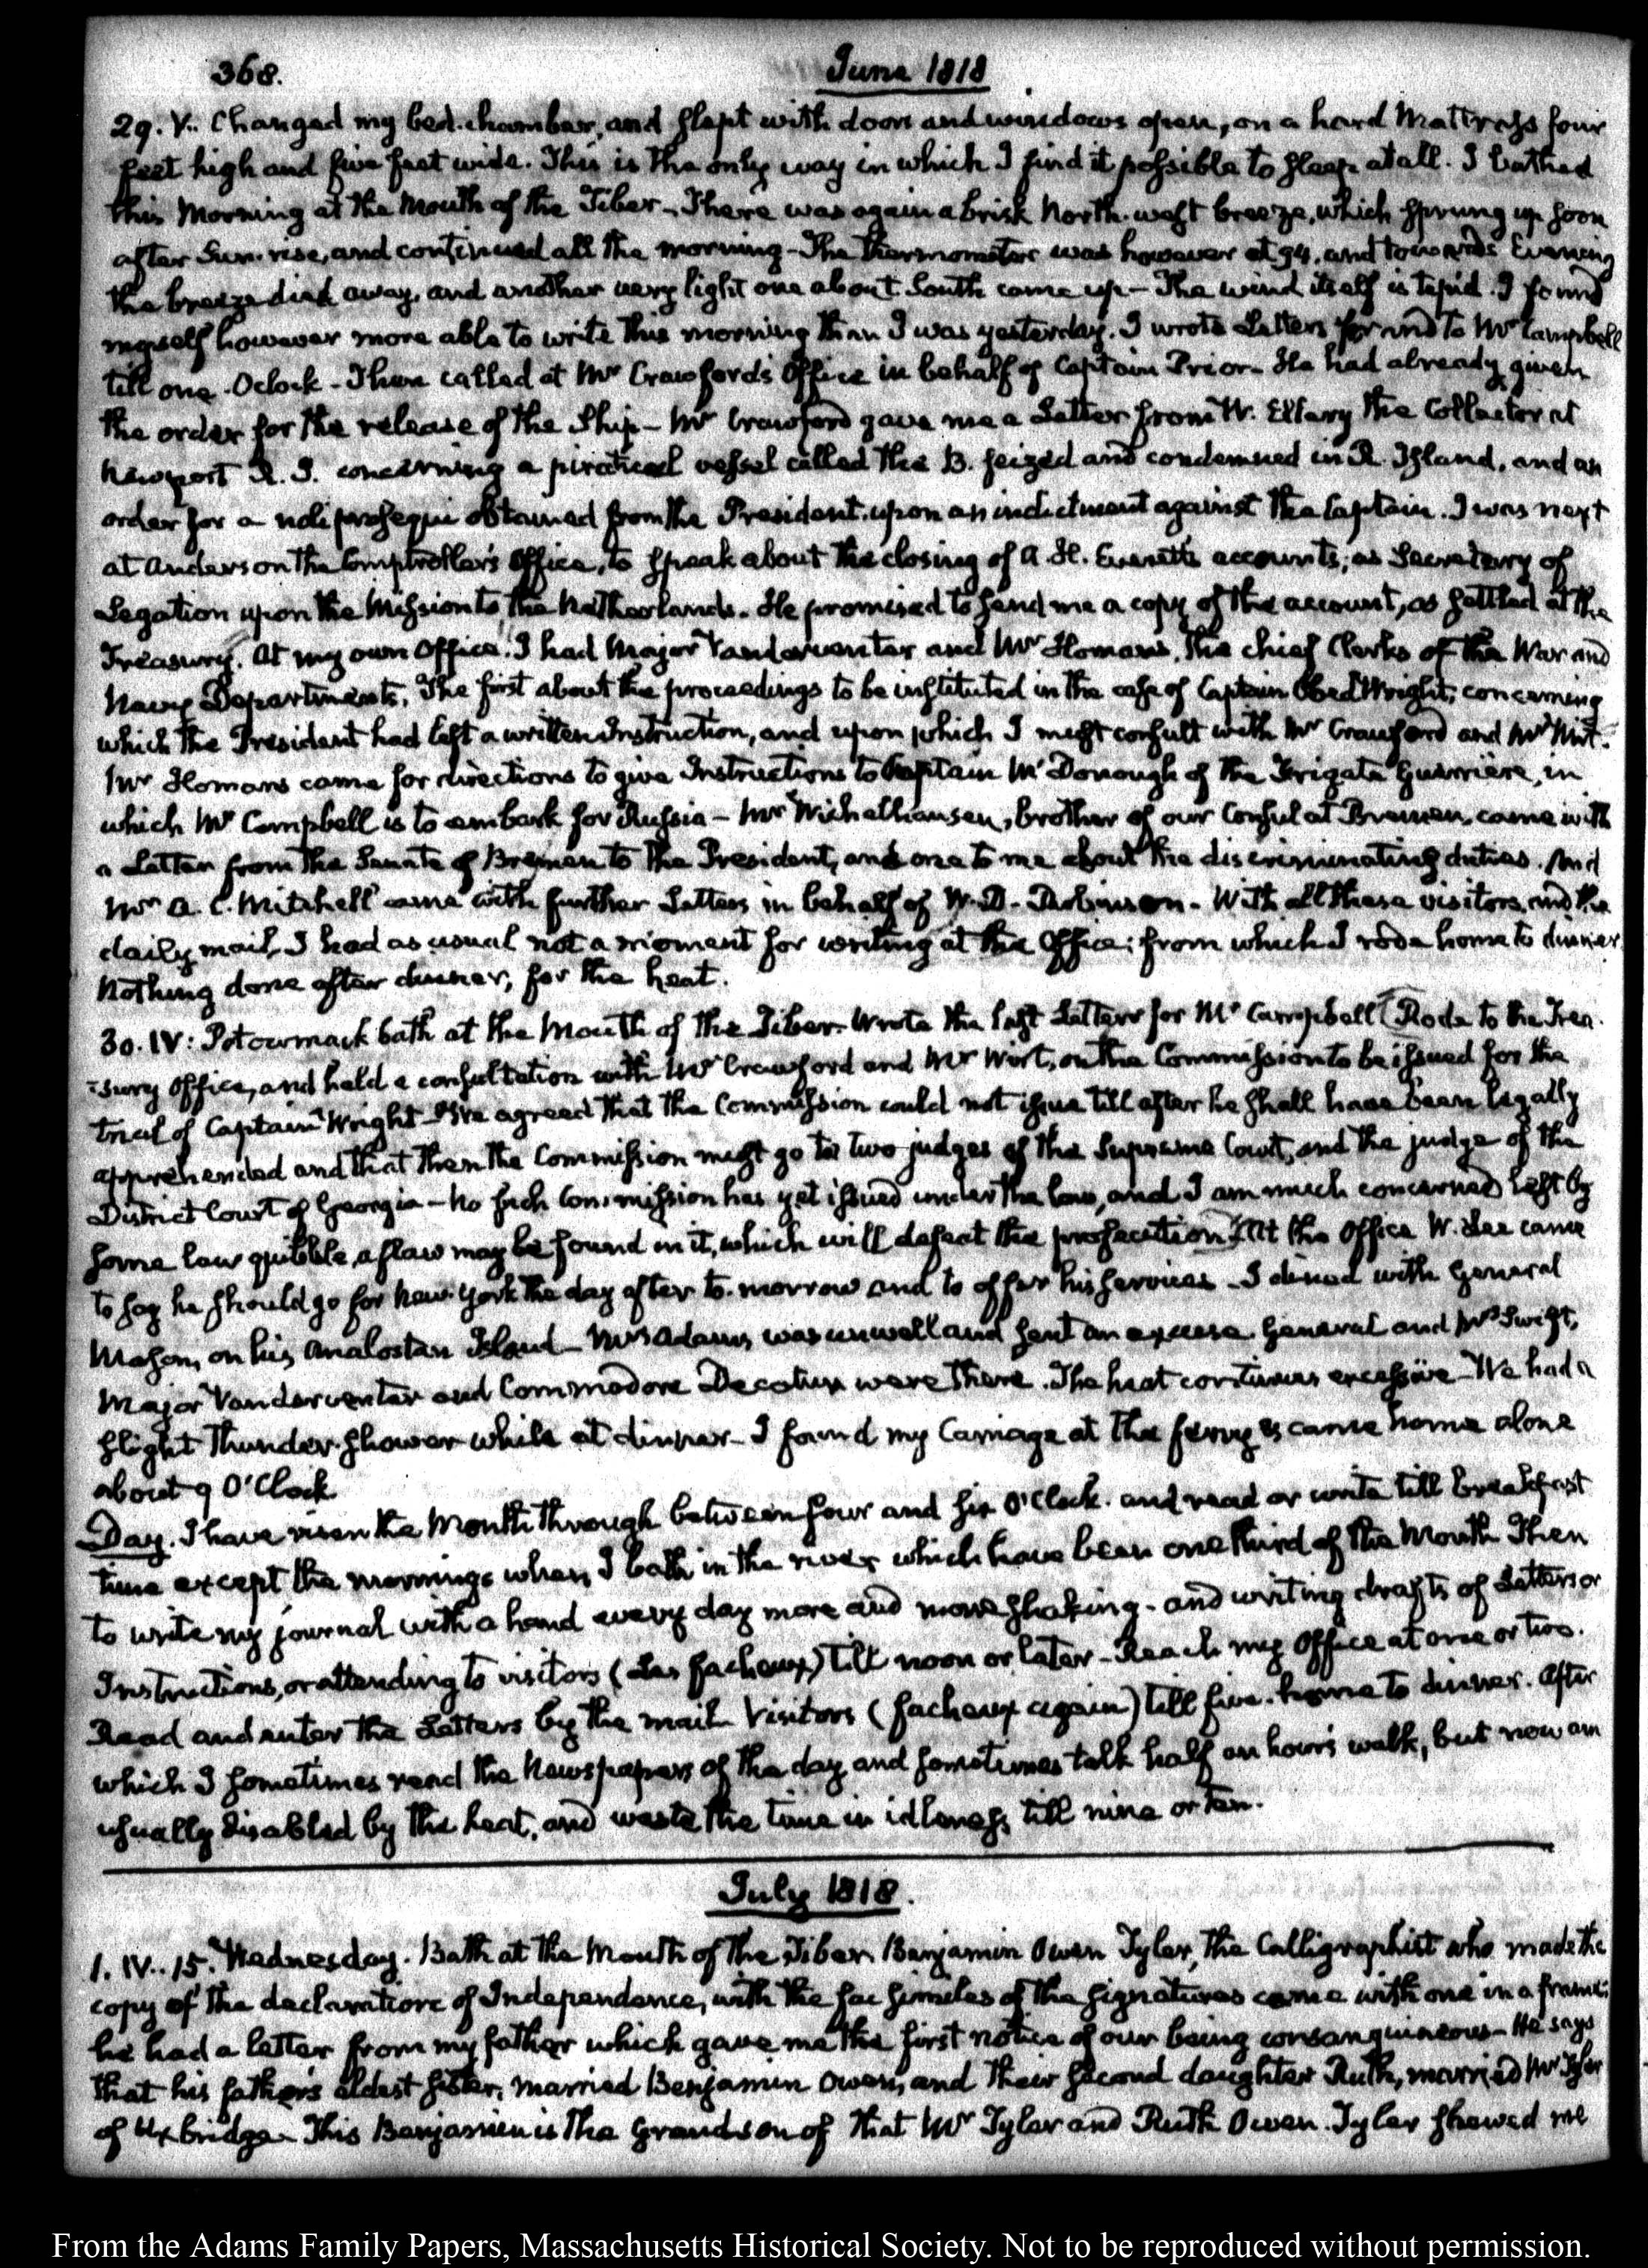 368.
June 1818
29. V.. Changed my bed-chamber, and slept with doors and windows open, on a hard Mattress four
feet high and five feet wide. This is the only way in which I find it possible to sleep at all. I bathed
this Morning at the Mouth of the Tiber. There was again a brisk North-west breeze, which sprung up soon
after Sun-rise, and continued all the morning - The thermometer was however at 94. and towards Evening
the breeze died away, and another very light one about South came up - The wind itself is tepid. I found
myself however more able to write this morning than I was yesterday. I wrote Letters for and to Mr Campbell
till one O'clock - Then called at Mr Crawford's Office in behalf of Captain Prior - He had already given
the order for the release of the Ship - Mr Crawford gave me a Letter from W. Ellery the Collector at
Newport R. I. concerning a piratical vessel called the B. seized and condemned in R. Island, and an
order for a noli prosequi obtained from the President upon an indictment against the Captain. I was next
at Anderson the Comptroller's Office, to speak about the closing of A. H. Everett's accounts, as Secretary of
Legation upon the Mission to the Netherlands. He promised to send me a copy of the account, as settled at the
Treasury. At my own Office I had Major Vandeventer and Mr Homans, the chief Clerks of the War and
Navy Departments. The first about the proceedings to be instituted in the case of Captain Obed Wright, concerning
which the President had left a written Instruction, and upon which I must consult with Mr Crawford and Mr Wirt.
Mr Homans came for directions to give Instructions to Captain McDonough of the Frigate Guerriere, in
which Mr Campbell is to embark for Russia - Mr Wichelhausen, brother of our Consul at Bremen, came with
a Letter from the Senate of Bremen to the President, and one to me about the discriminating duties. And
Mr A. C. Mitchell came with further Letters in behalf of W. D. Robinson - With all these visitors, and the
daily mail, I had as usual not a moment for writing at the Office; from which I rode home to dinner
Nothing done after dinner, for the heat.
30. IV: Potowmack bath at the Mouth of the Tiber. Wrote the last Letters for Mr Campbell Rode to the Trea-
-sury office, and held a consultation with Mr Crawford and Mr Wirt, on the Commission to be issued for the
trial of Captain Wright - We agreed that the Commission could not issue till after he shall have been legally
apprehended and that then the Commission must go to two judges of the Supreme Court, and the judge of the
District Court of Georgia - No such Commission has yet issued under the law, and I am much concerned lest by
some law quibble, a flaw may be found in it, which will defeat the prosecution. At the Office W. Lee came
to say he should go for New-York the day after to-morrow and to offer his services - I dined with General
Mason, on his Analostan Island - Mrs Adams was unwell and sent an excuse. General and Mrs Swift,
Major Vandeventer and Commodore Decatur were there. The heat continues excessive - We had a
slight Thunder-shower while at dinner - I found my Carriage at the ferry & came home alone
about 9 O'Clock
Day. I have risen the Month through between four and six O'Clock. and read or write till breakfast
time except the mornings when I bath in the river which have been one third of the Month Then
to write my journal with a hand every day more and more shaking - and writing drafts of Letters or
Instructions, or attending to visitors (Les facheux) till noon or later - Reach my Office at one or two.
Read and enter the Letters by the mail. Visitors (facheux again) till five. home to dinner. After
which I sometimes read the Newspapers of the day and sometimes talk half an hour's walk, but now am
usually disabled by the heat, and waste the time in idleness till nine or ten.
July 1818.
1. IV.. 15. Wednesday. Bath at the Mouth of the Tiber Benjamin Owen Tyler, the Calligraphist who made the
copy of the declaration of Independence, with the fac similes of the signatures came with one in a frame;
he had a letter from my father which gave me the first notice of our being consanguineous - He says
that his father's oldest sister, married Benjamin Owen, and their second daughter Ruth, married Mr Tyler
of Uxbridge - This Benjamin is the Grandson of that Mr Tyler and Ruth Owen. Tyler shewed me
From the Adams Family Papers, Massachusetts Historical Society. Not to be reproduced without permission.